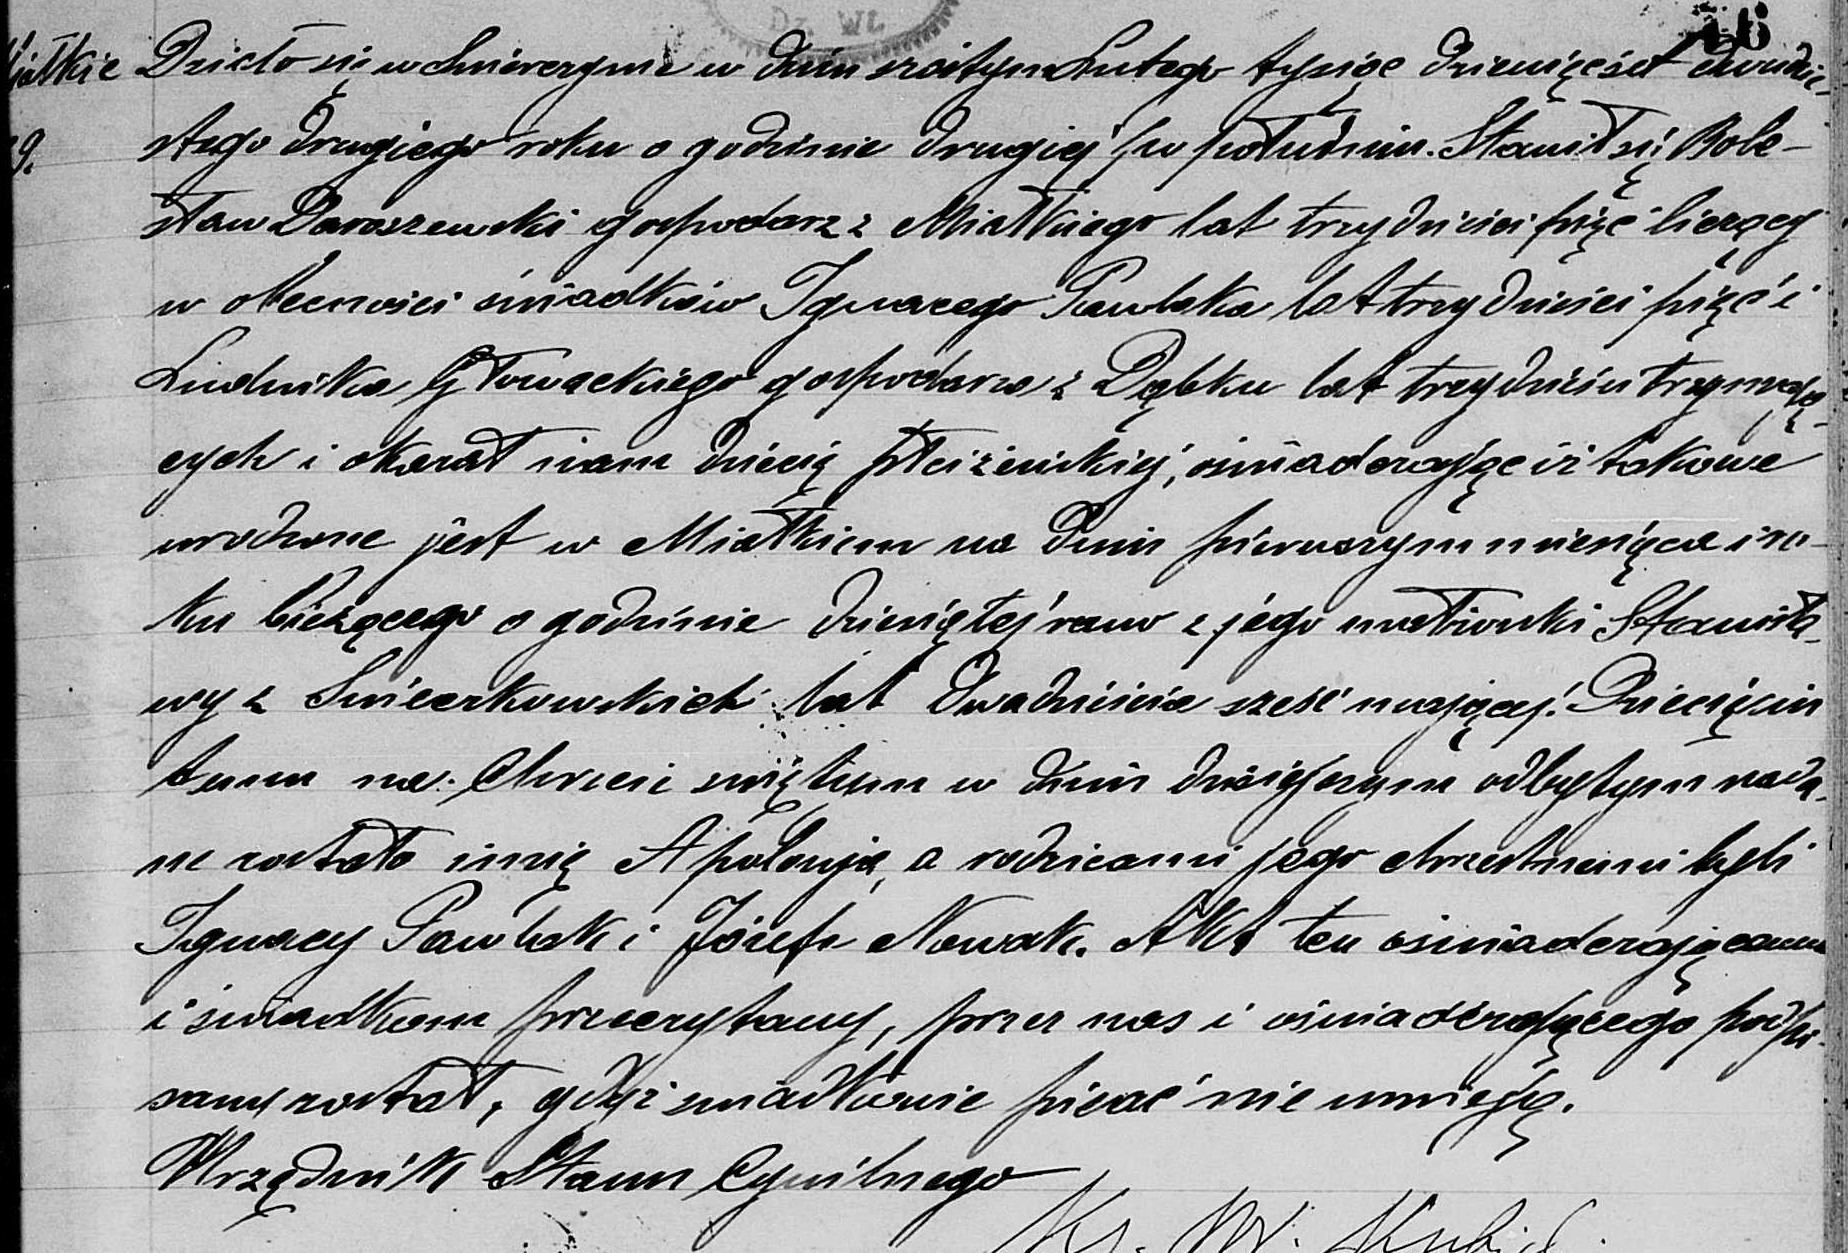 Dz. Wł.
46
Miałkie Działo się w Smierzynie w dniu szóstym Lutego tysiąc dziewięćset dwudzie-
9. stego drugiego roku o godzinie drugiej po południu. Stawił się Bole-
sław Daroszewski gospodarz z Miałkiego lat trzydzieści pięć liczący
w obecności świadków Ignacego Pawlaka lat trzydzieści pięć i
Ludwika Głowackiego gospodarza z Dąbku lat trzydzieści trzy mają-
cych i okazał nam dziecię płci żeńskiej, oświadczając iż takowe
urodzone jest w Miałkiem na dniu pierwszym miesiąca i ro-
ku bieżącego o godzinie dziesiątej rano z jego małżonki Stanisła-
wy z Świerkowskich lat dwadzieścia sześć mającej. Dziecięciu
temu na Chrzcie świętym w dniu dzisiejszym odbytym nada-
ne zostało imię Apolonja, a rodzicami jego chrzestnemi byli
Ignacy Pawlak i Józefa Nowak. Akt ten oświadczającemu
i świadkom przeczytany, przez nas i oświadczającego podpi-
sany został, gdyż świadkowie pisać nie umieją.
Urzędnik Stanu Cywilnego
Ks. W.